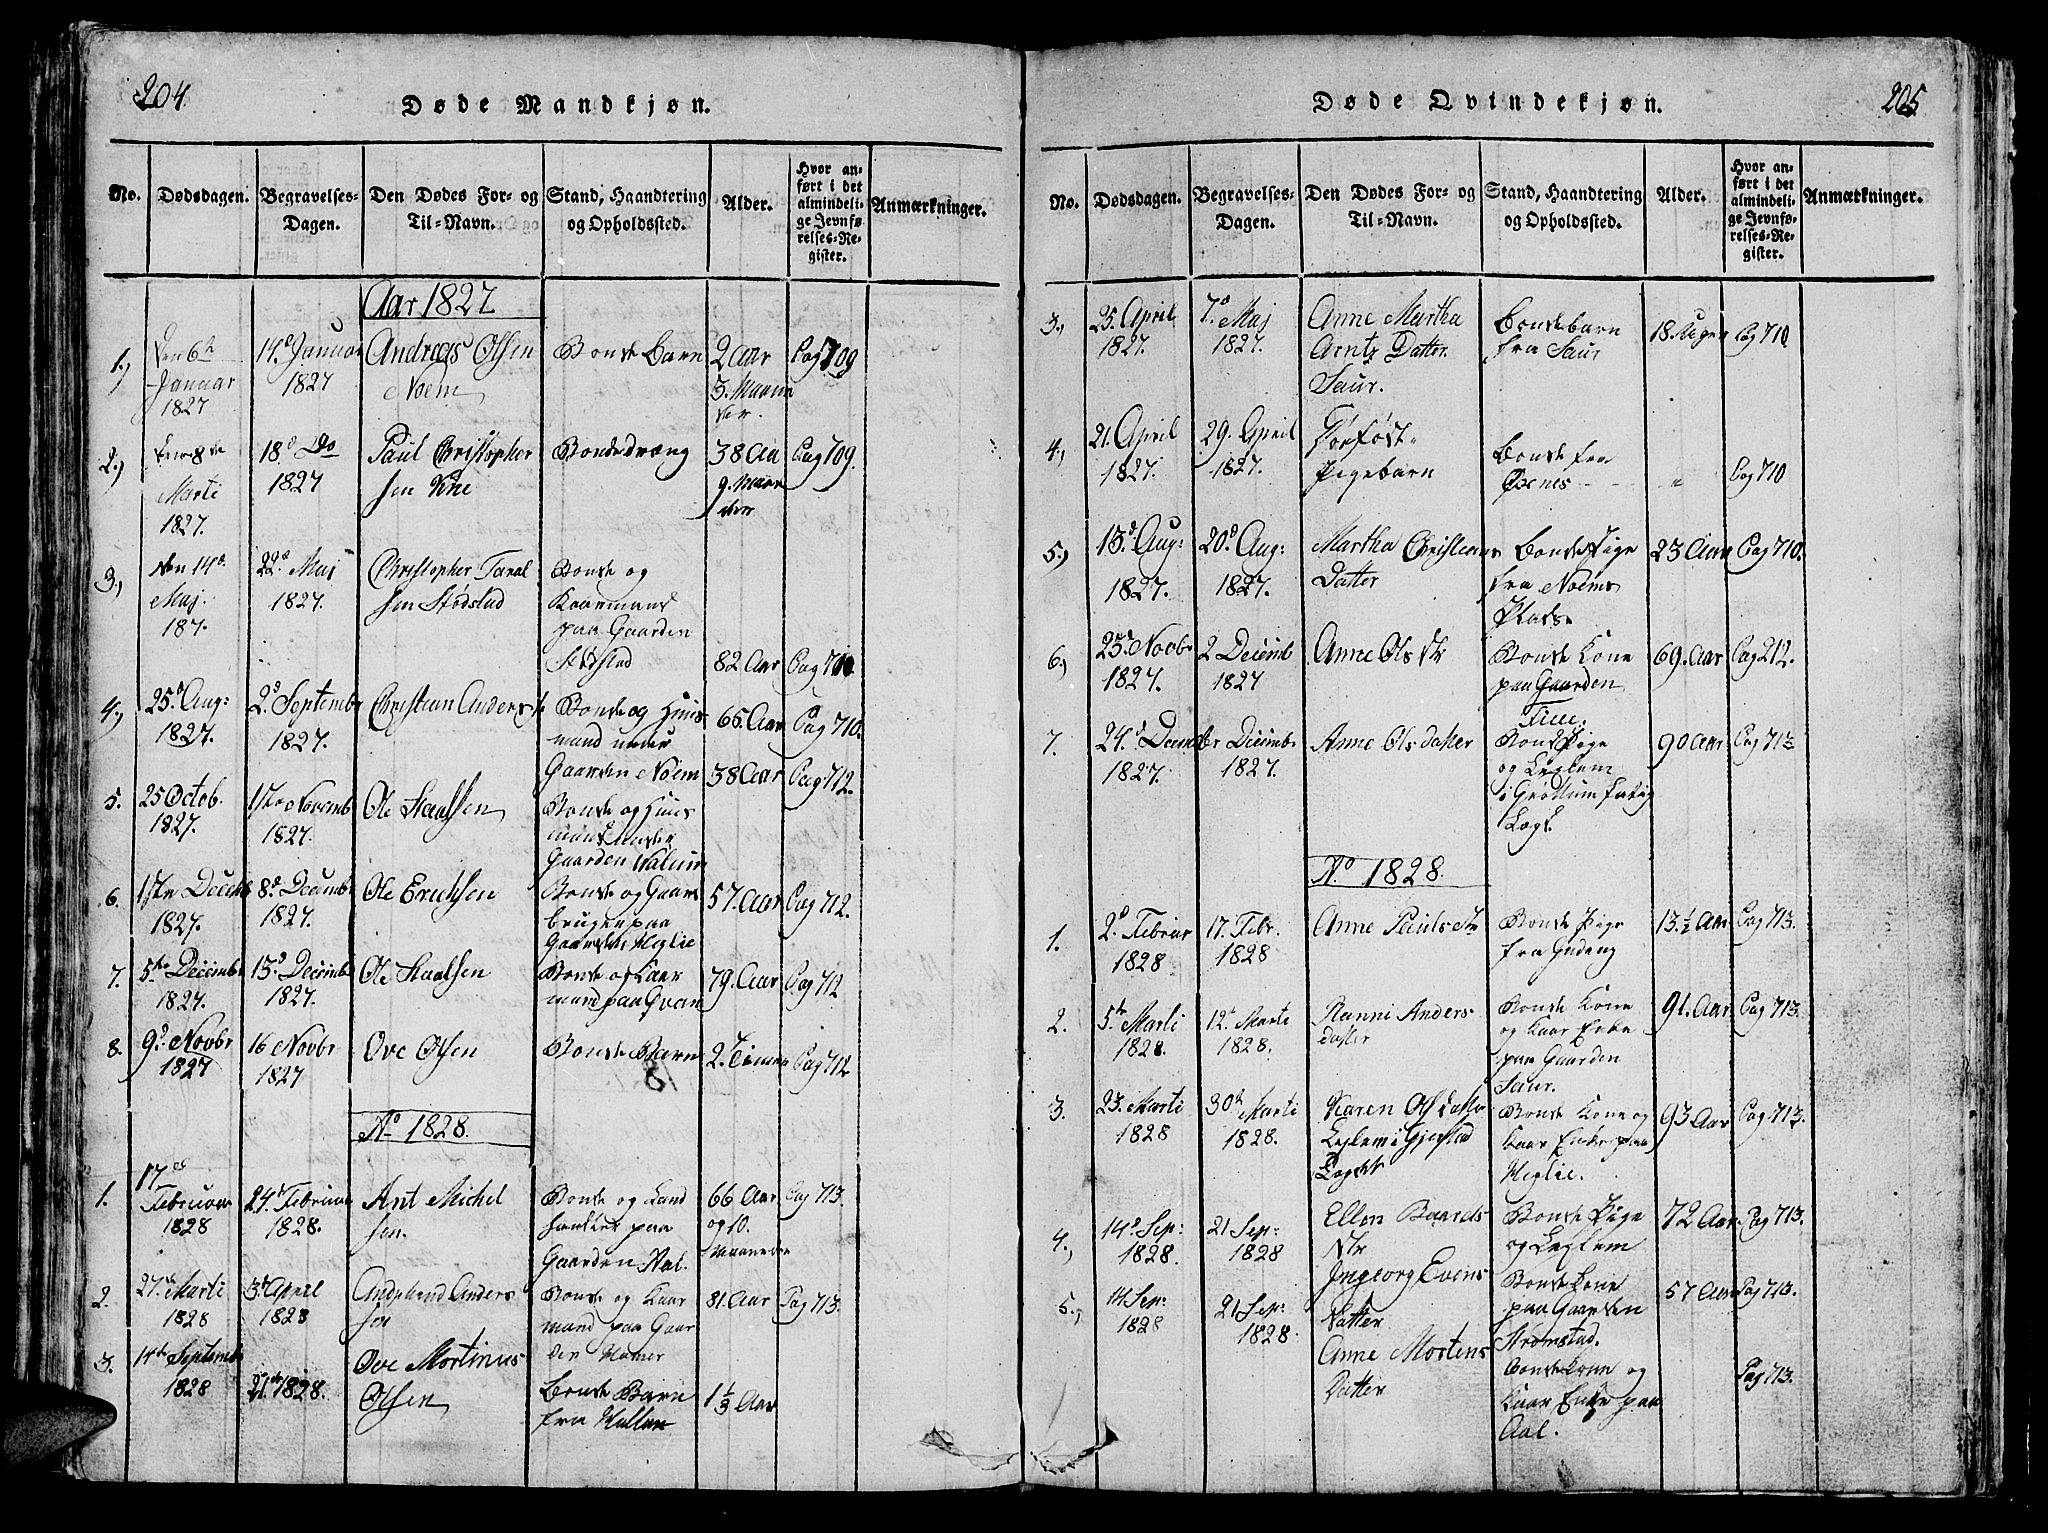 204.
Døde Mandkjøn.
No.
Dødsdagen.
Begravelses-
Dagen.
Den Dødes For- og
Til-Navn.
Stand, Haandtering
og Opholdssted.
Alder.
Hvor an-
ført i det
almindeli-
ge Jevnfø-
relses-Re-
gister.
Anmærkninger.
Aar 1827
1.,
Den 6te
Januar
1827
14d Januar
1827
Andreas Olsen
Noem
Bonde Barn
2 Aar
3. Maane
der.
Pag 709
2.,
Marti
1827.
18d Do
1827
Paul Christopher
sen
Bondedræng
38 Aar
9. Maane
der
Pag 709.
3.,
Den 14d
Maj.
187.
22d Maj
1827.
Christopher Taral
sen Stodstad
Bonde og
Kaarmand
paa Gaarden
Stodstad
82 Aar
Pag 710.
4.,
25d Aug:
1827.
2d Septembr
1827.
Christian Anders
Bonde og Huus
mand under
Gaarden Noem
65. Aar
Pag 710.
5.
25 Octob.
1827.
1ste Novemb
1827.
Ole Staalsen
Bonde og Huus
mand under
Gaarden Walum
38 Aar
Pag 712.
6.
1ste Decemb
1827.
8d Decembr
1827.
Ole Erichsen
Bonde og Gaard
bruger paa
Gaarden Meglie
57. Aar
Pag 712.
7.
5te Decembr
1827.
15d Decemb
1827.
Ole Staalsen
Bonde og Kaar
mand paa Qvam
79. Aar
Pag 712
8.
9d Novbr
1827
16 Novbr
1827
Ove Olsen
Bonde Barn
2. Timer
Pag 712
Ao 1828.
1.
17de
Februar
1828
24d Februar
1828.
Ant Michel
sen.
Bonde og Land
handler paa
Gaarden
66 Aar
og 10.
Maaneder
Pag 713.
2.
27de Marti
1828
3d April
1828
Anders
sen
Bonde og Kaar
mand paa Gaar
den Hamer
81. Aar
Pag 713.
3.
14de Septemb
1828
21de 1828.
Ove Mortinus
Olsen
Bonde Barn
fra Hullan
1 1/3 Aar
205
Døde Qvindekjøn.
No.
Dødsdagen.
Begravelses-
Dagen.
Den Dødes For- og
Til-Navn.
Stand, Haandtering
og Opholdssted.
Alder.
Hvor an-
ført i det
almindeli-
ge Jevnfø-
relses-Re-
gister.
Anmærkninger.
3.,
25. April
1827.
7d Maj
1827.
Anne Martha
Arntz Datter
Saur.
Bondebarn
fra Saur
18 Uger
Pag 710
4.,
21. April
1827.
29. April
1827.
Pigebarn
Bonde fra
Øxnes
"
Pag 710
5.,
13d Aug:
1827.
20d Aug:
1827.
Martha Christians
Datter
Bonde Pige
fra Noems
Pladse
23 Aar
Pag 710.
6.,
25d Novbr
1827.
2 Decemb
1827
Anne Olsdtr
Bonde Kone
paa Gaarden
69. Aar
Pag 212.
7.
24d Decembr
1827.
Decembr
1827.
Anne Olsdatter
Bonde Pige
og Leglem
i Grottum fattig
Lægd.
90 Aar
Pag 713
Ao 1828.
1.
2d Februar
1828
17. Febr.
1828
Anne Paulsdtr
Bonde Pige
fra Gudeng
13 1/2 Aar
Pag 713.
2.
5te Marti
1828.
12te Marti
1828.
Nanni Anders
datter
Bonde Kone
og Kaar Enke
paa Gaarden
Saur.
91. Aar
Pag 713.
3.
23. Marti
1828
30te Marti
1828.
Karen Olsdatter
Leglem i Gjerstad
Lægdt
Bonde Kone og
Kaar Enke paa
Meglie.
93 Aar
Pag 713.
4.,
14d Sep:
1828.
21 Sep:
1828
Ellen Baards
dtr
Bonde Pige
og Leglem
72 Aar
Pag 713.
5.,
14 Sep:
1828
21 Sep:
1828.
Ingeorg Evens
Datter
Bonde Kone
paa Gaarden
Stromstad.
57 Aar
Pag 713.
Anne Mortens
Datter
Bonde Kone og
Kaar Enke paa
Aal.
Pag 713.